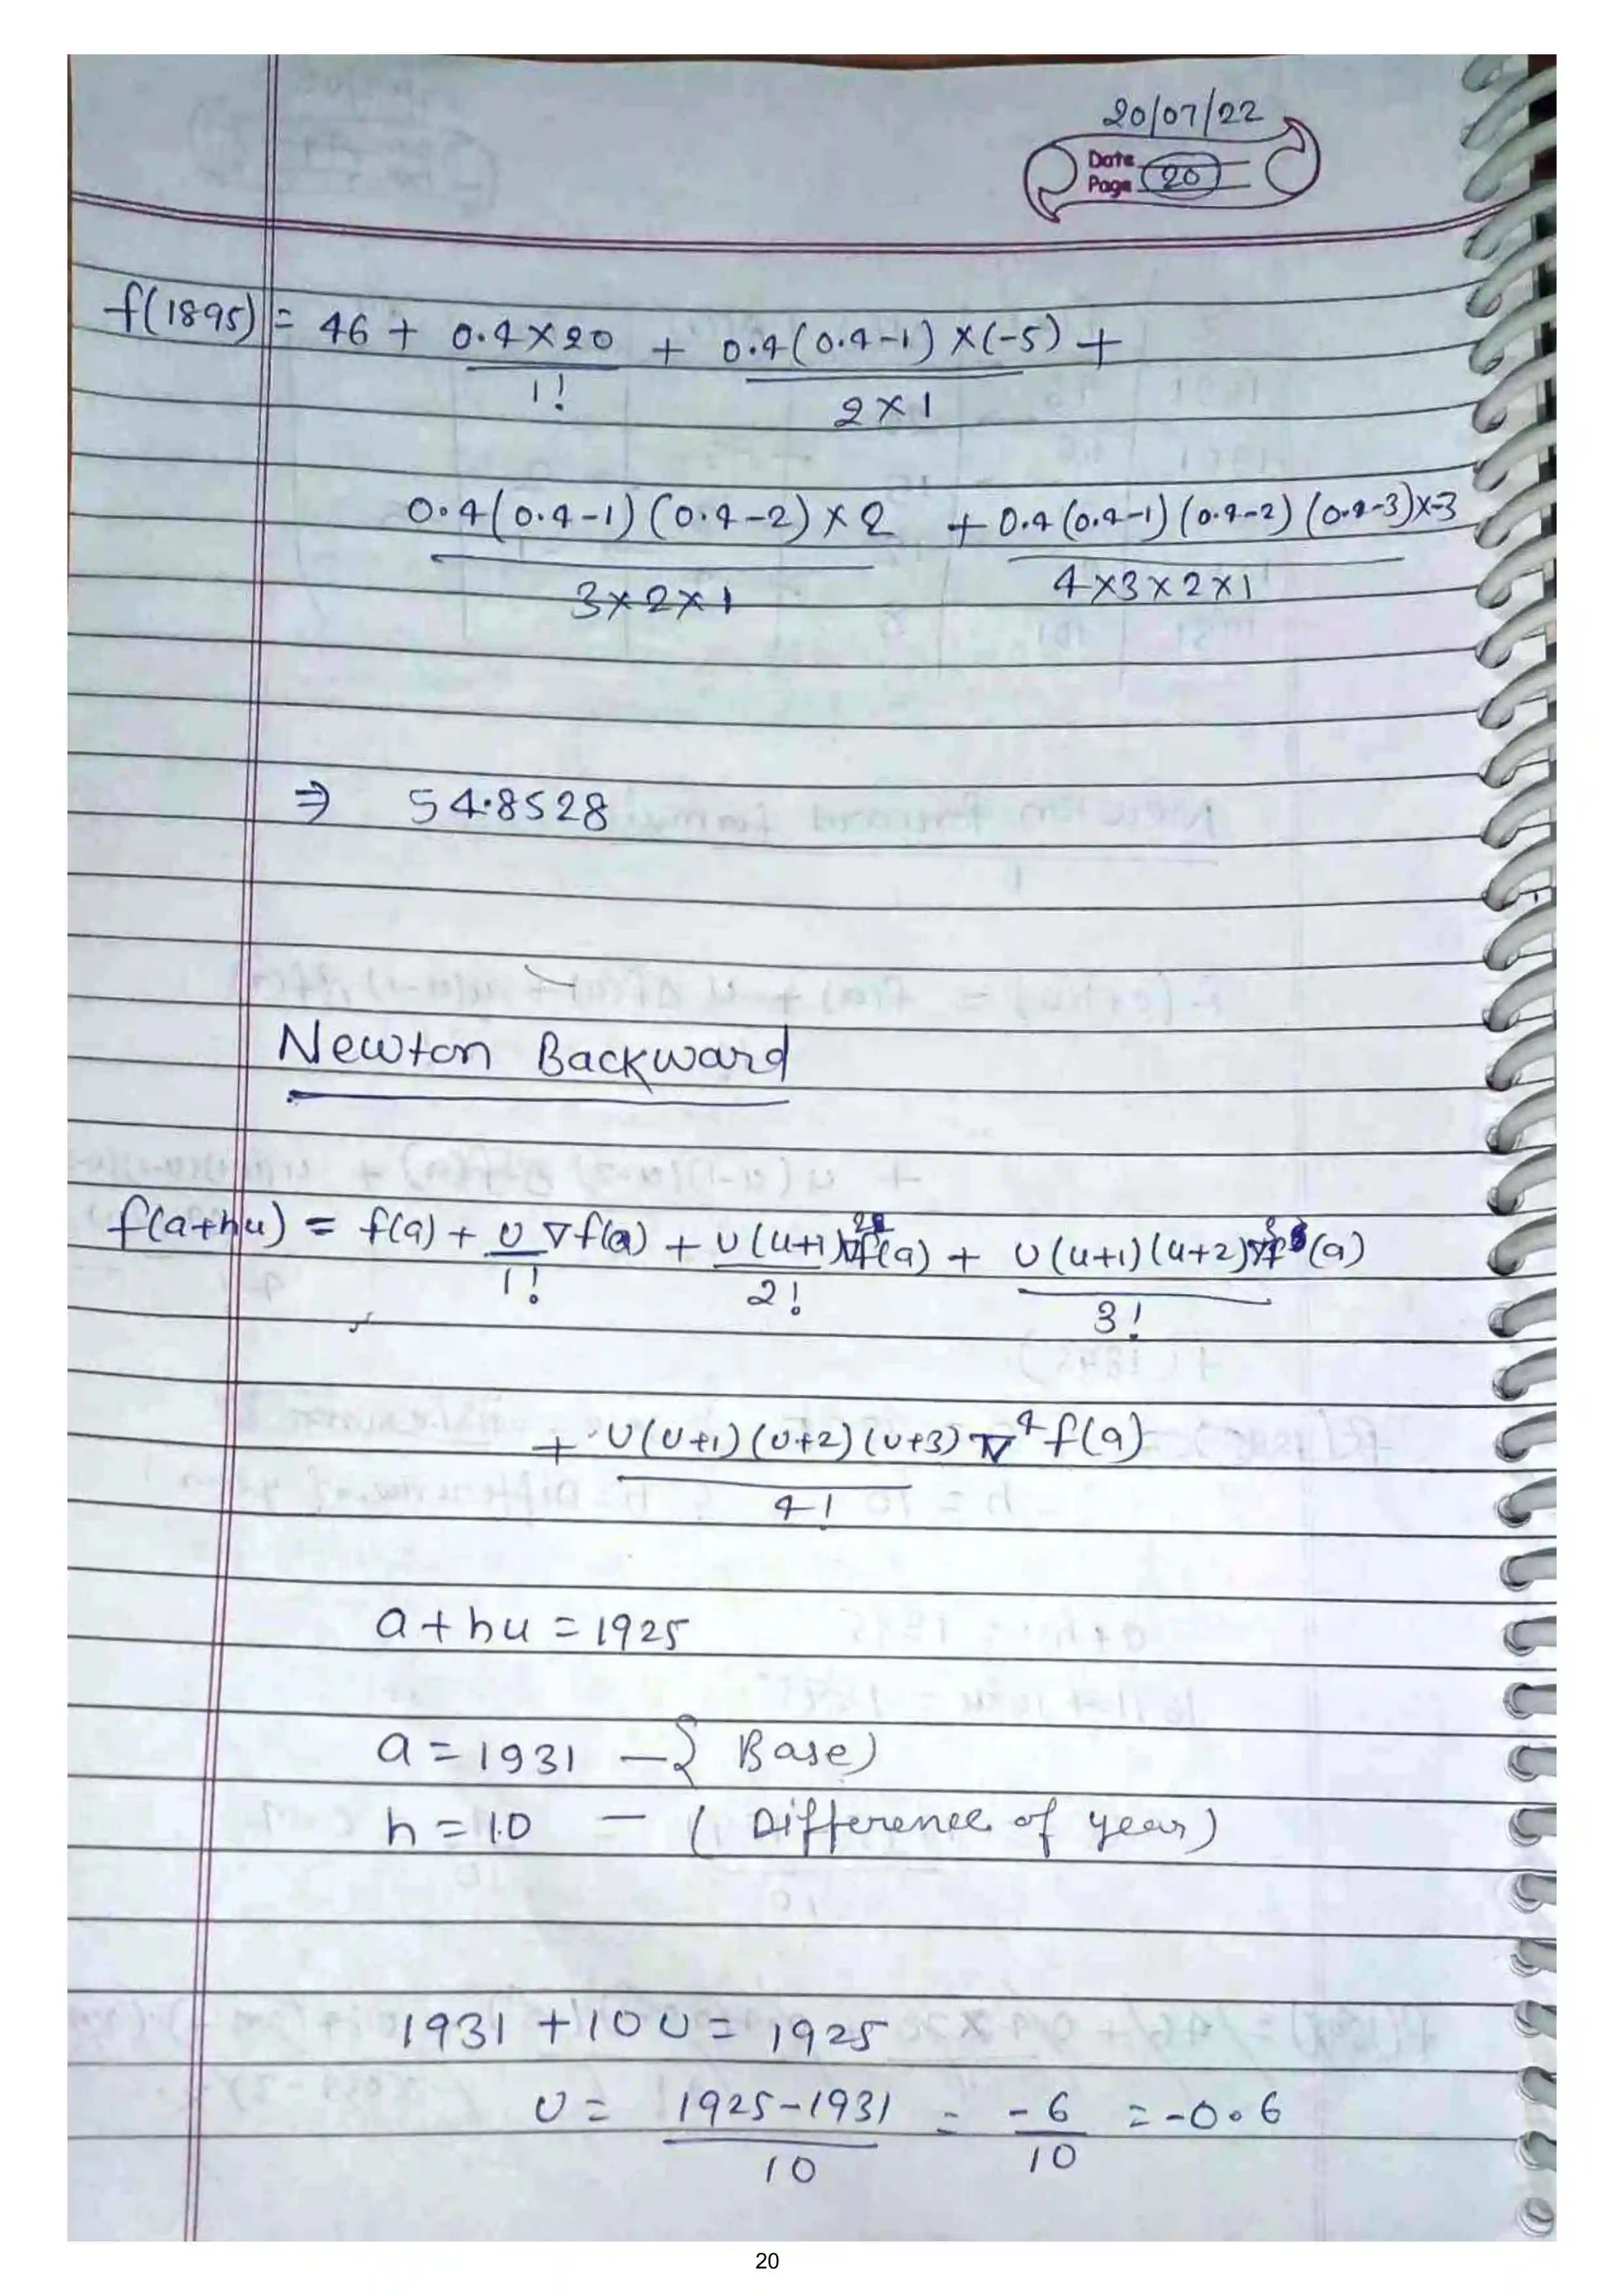 20/07/22
Date
Page 20
f(1895) = 46 + 0.4×20 + 0.4(0.4-1)×(-5) +
1! 2×1
0.4(0.4-1)(0.4-2)×2 + 0.4(0.4-1)(0.4-2)(0.4-3)×-3
3×2×1 4×3×2×1
⇒ 54.8528
Newton Backward
f(a+hu) = f(a) + U ∇f(a) + U(u+1)∇²f(a) + U(u+1)(u+2)∇³f(a)
1! 2! 3!
+ U(U+1)(U+2)(U+3)∇⁴f(a)
4!
a+hu = 1925
a = 1931 — { Base)
h = 10 — ( Difference of year)
1931 + 10U = 1925
U = 1925-1931 = -6 = -0.6
10 10
20